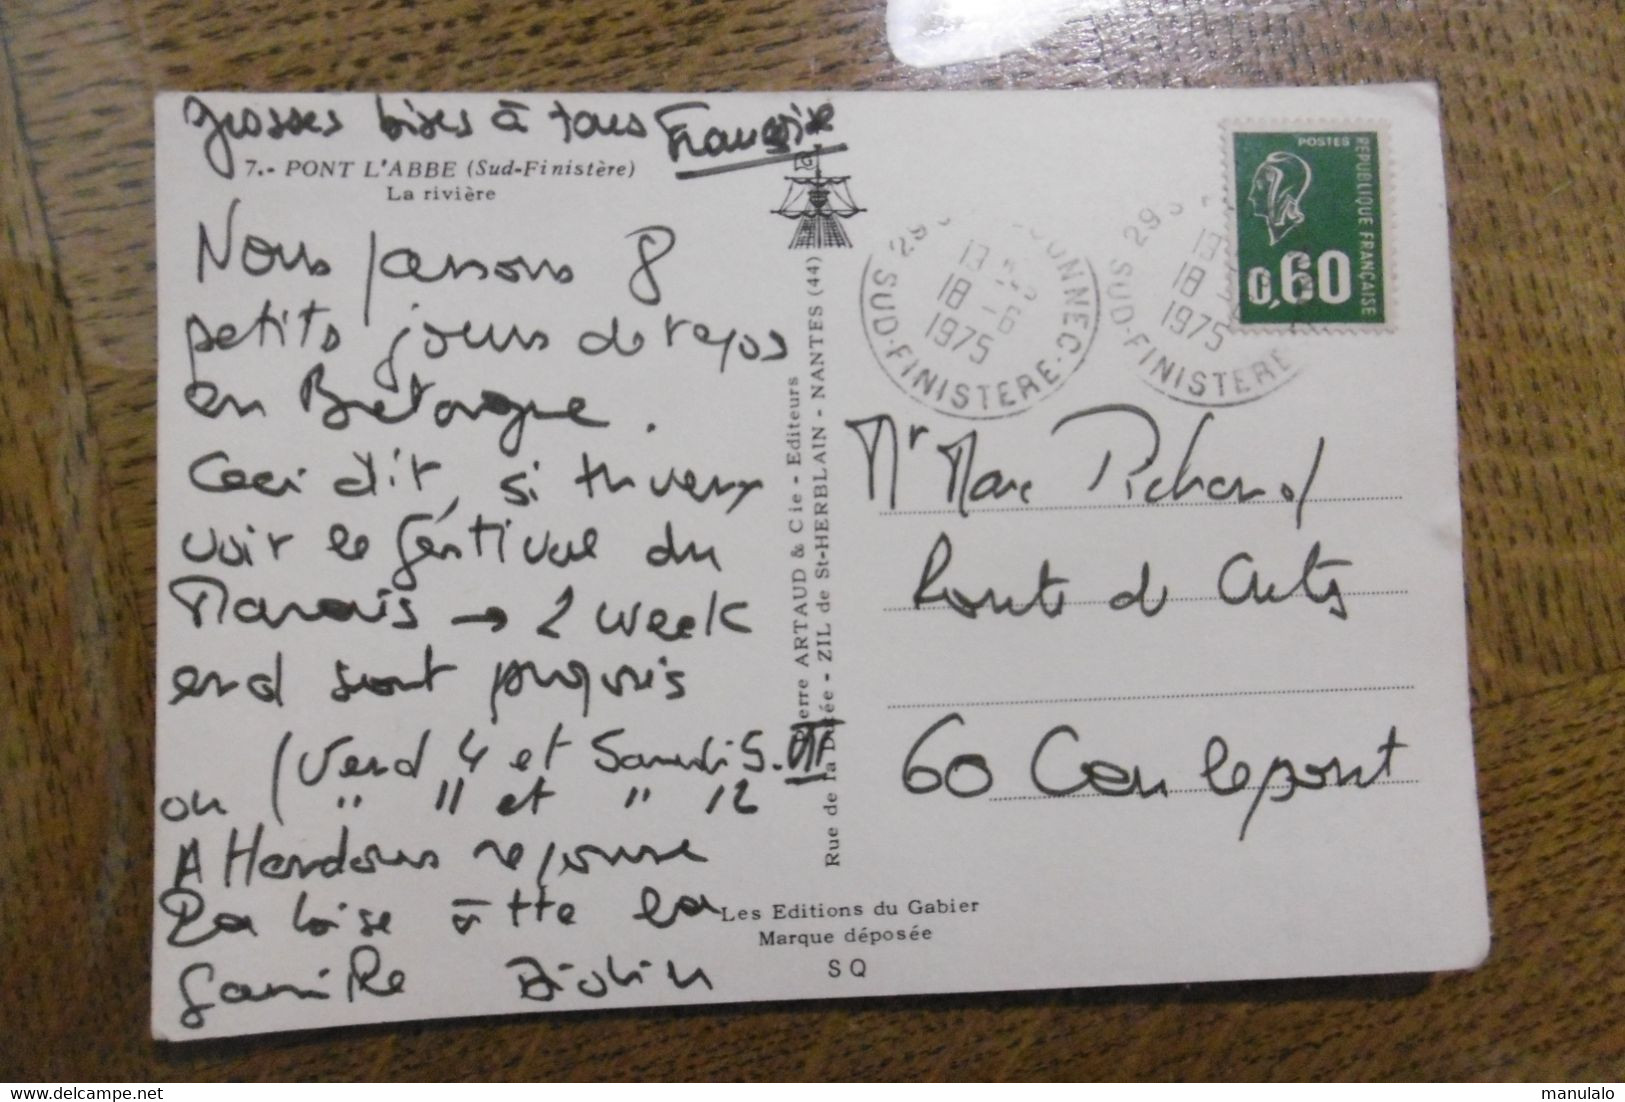 grosses bises à tous Françoise
7.- PONT L'ABBE (Sud-Finistère)
La rivière
Nous passons 8
petits jours de repos
en Bretagne.
Ceci dit, si tu veux
voir le festival du
Marais → 2 week
end sont propris
(Vend 4 et Samedi 5. VII
ou ( " 11 et " 12
Attendons réponse
La bise à tte la
famille
Pierre ARTAUD & Cie - Editeurs
Rue de la Dutée - ZIL de St-HERBLAIN - NANTES (44)
Les Editions du Gabier
Marque déposée
SQ
13
18 -6
1975
SUD-FINISTERE
29
18
1975
SUD-FINISTERE
POSTES
REPUBLIQUE FRANÇAISE
0,60
Mr Marc Pichard
Route de
60
delcampe.net
manulalo